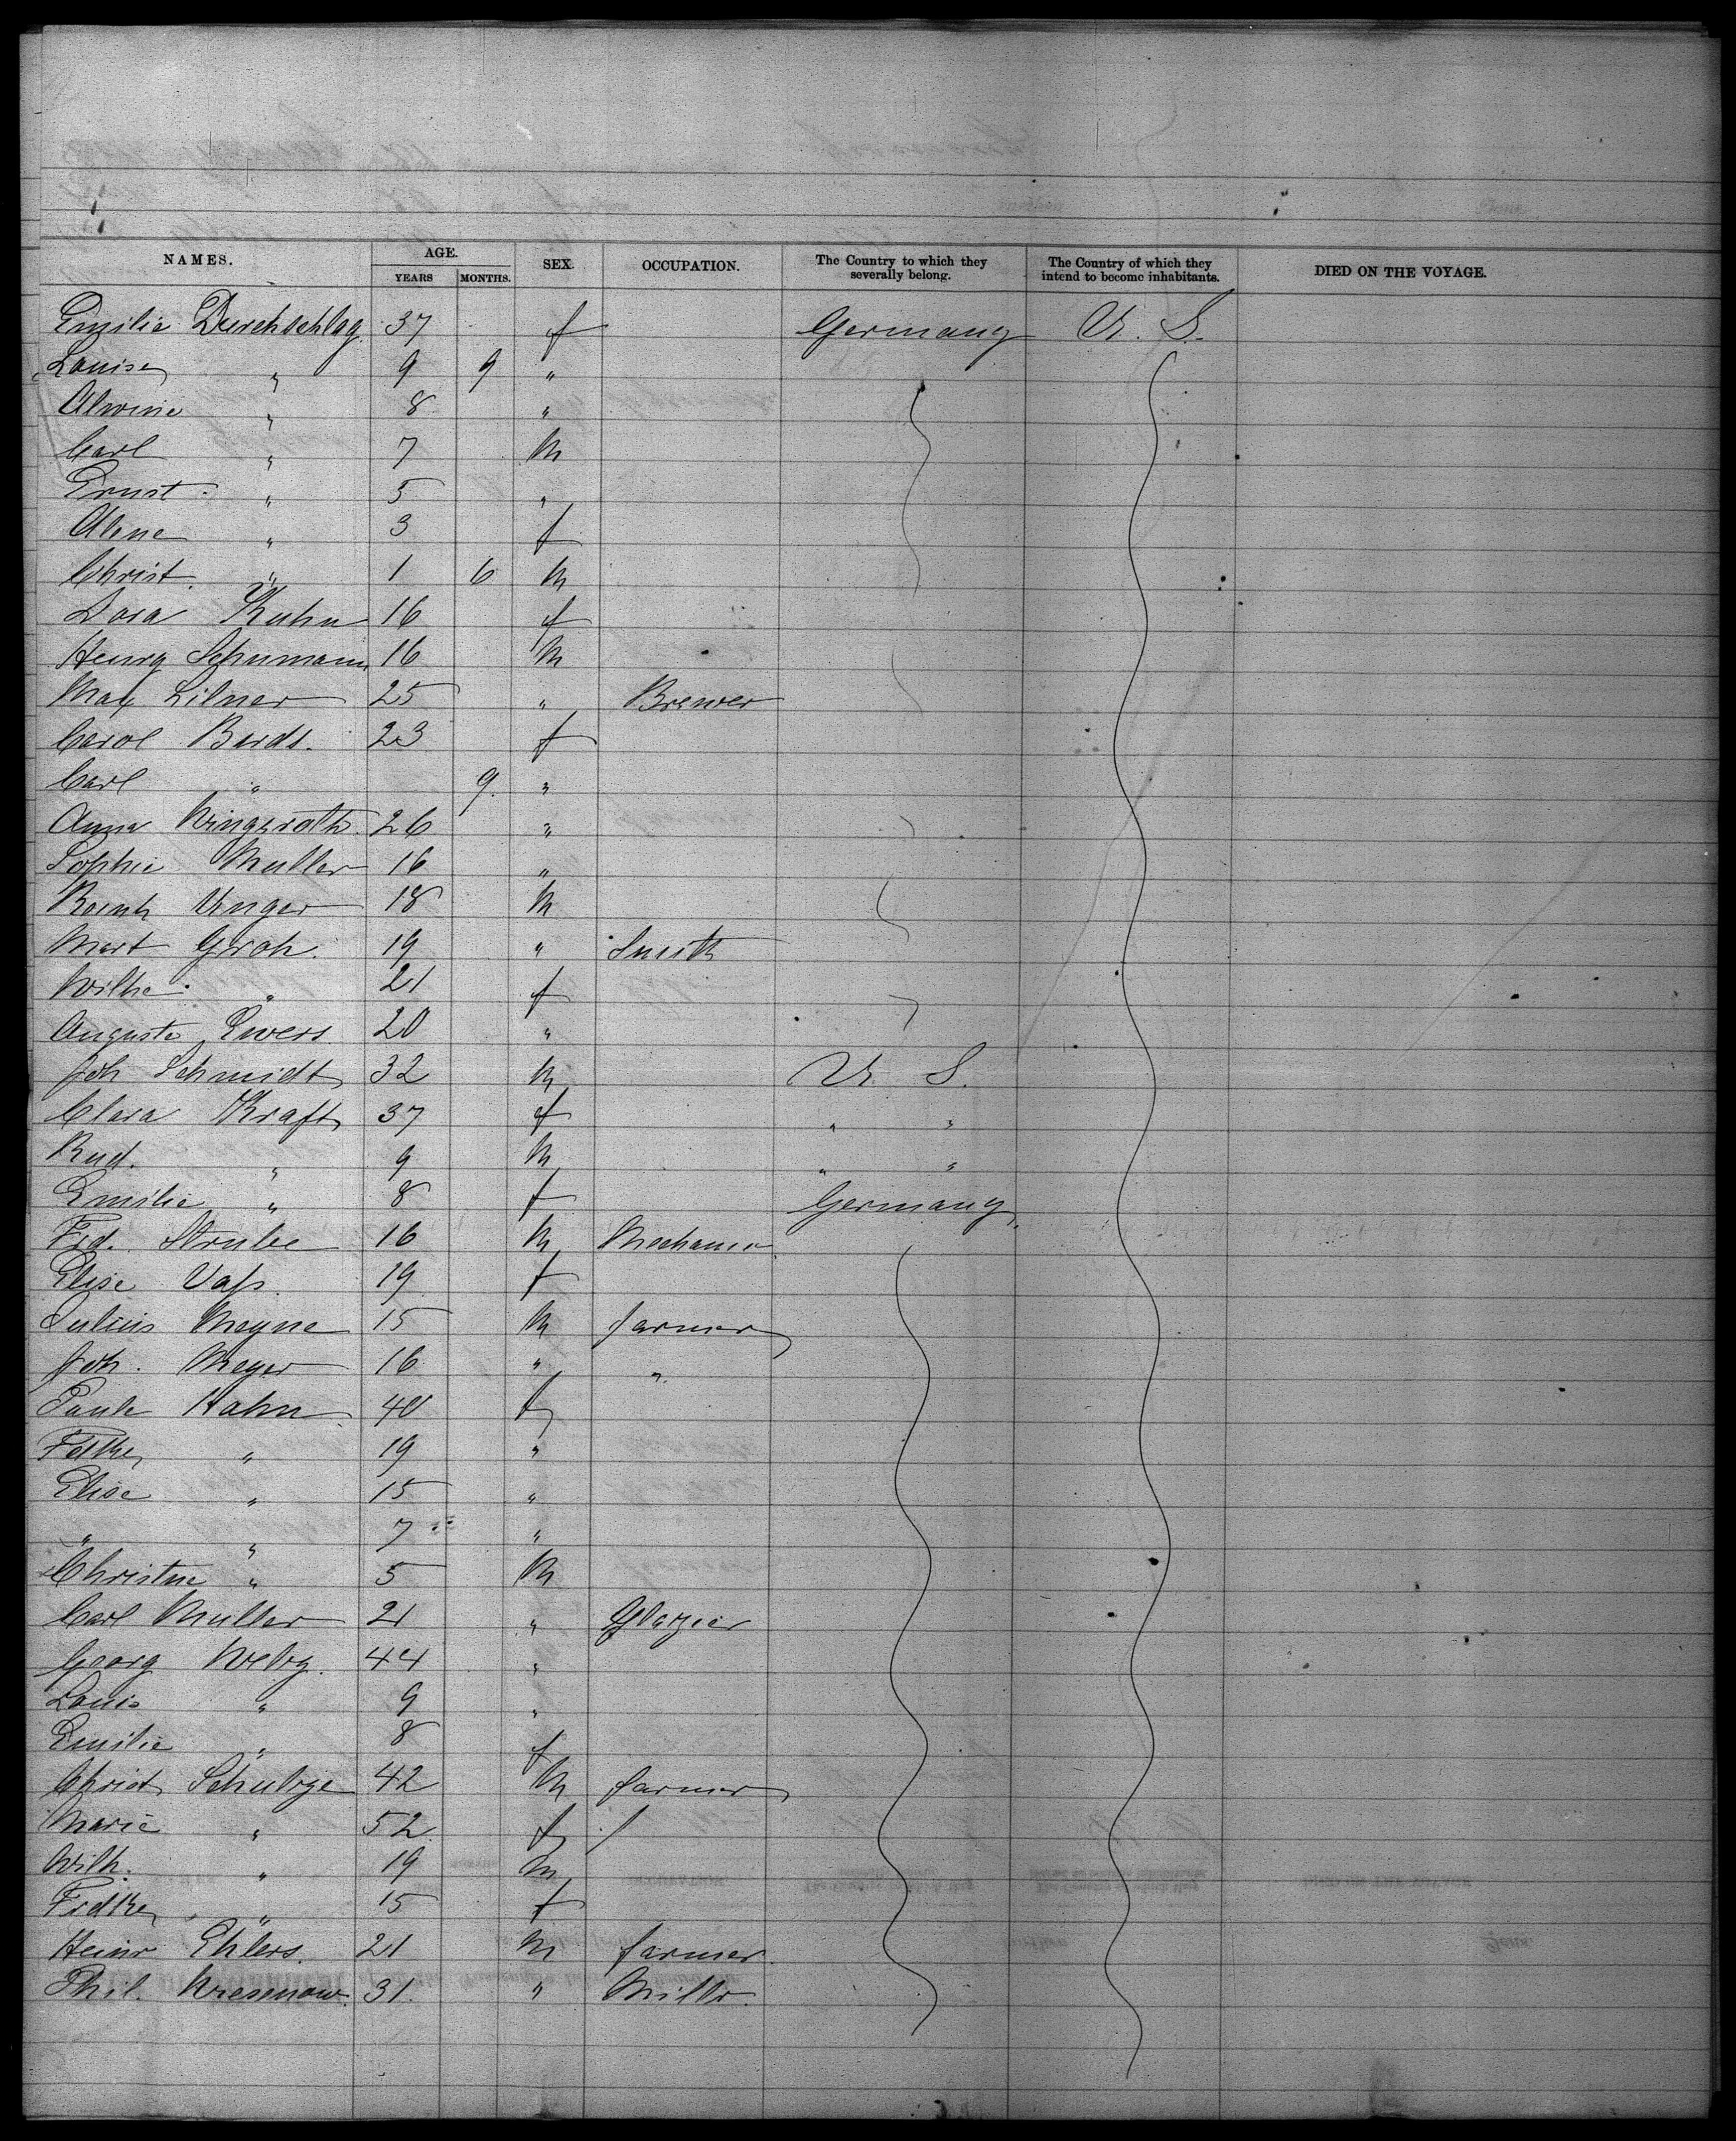 NAMES. AGE. YEARS MONTHS. SEX. OCCUPATION. The Country to which they severally belong. The Country of which they intend to become inhabitants. DIED ON THE VOYAGE.
Emilie Durchschlag 37 f Germany U. S.
Louise " 9 9 "
Alwine " 8 "
Carl " 7 M
Ernst " 5 "
Alene " 3 f
Christ. " 1 6 M
Dora Kuhn 16 f
Henry Schumann 16 M
Max Lilner 25 " Brewer
Carol Burds. 23 f
Carl " 9. "
Anna 26 "
Sophie Muller 16 "
Bernh Unger 18 M
Mart Groh. 19 " Smith
Wilhe. " 21 f
Auguste Ewers. 20 "
Joh Schmidt 32 M U. S.
Clara Kraft 37 f " "
Rud. " 9 M " "
Emilie " 8 f Germany.
Frd. Strube 16 M Mechanic
Elise Vass. 19 f
Julius Meyne 15 M farmer
Joh. Meyer 16 " "
Paule Hahn 40 f
Fdke " 19 "
Elise " 15 "
" " 7 "
Christne " 5 M
Carl Muller 21 " Glazier
Georg Welz. 44 "
Louis " 9 "
Emilie " 8 f
Christ Schulze 42 M farmer
Marie " 52 f
Wilh. " 19 M
Frdke " 15 f
Heinr Ehlers. 21 M farmer.
Phil. 31. " Millr.